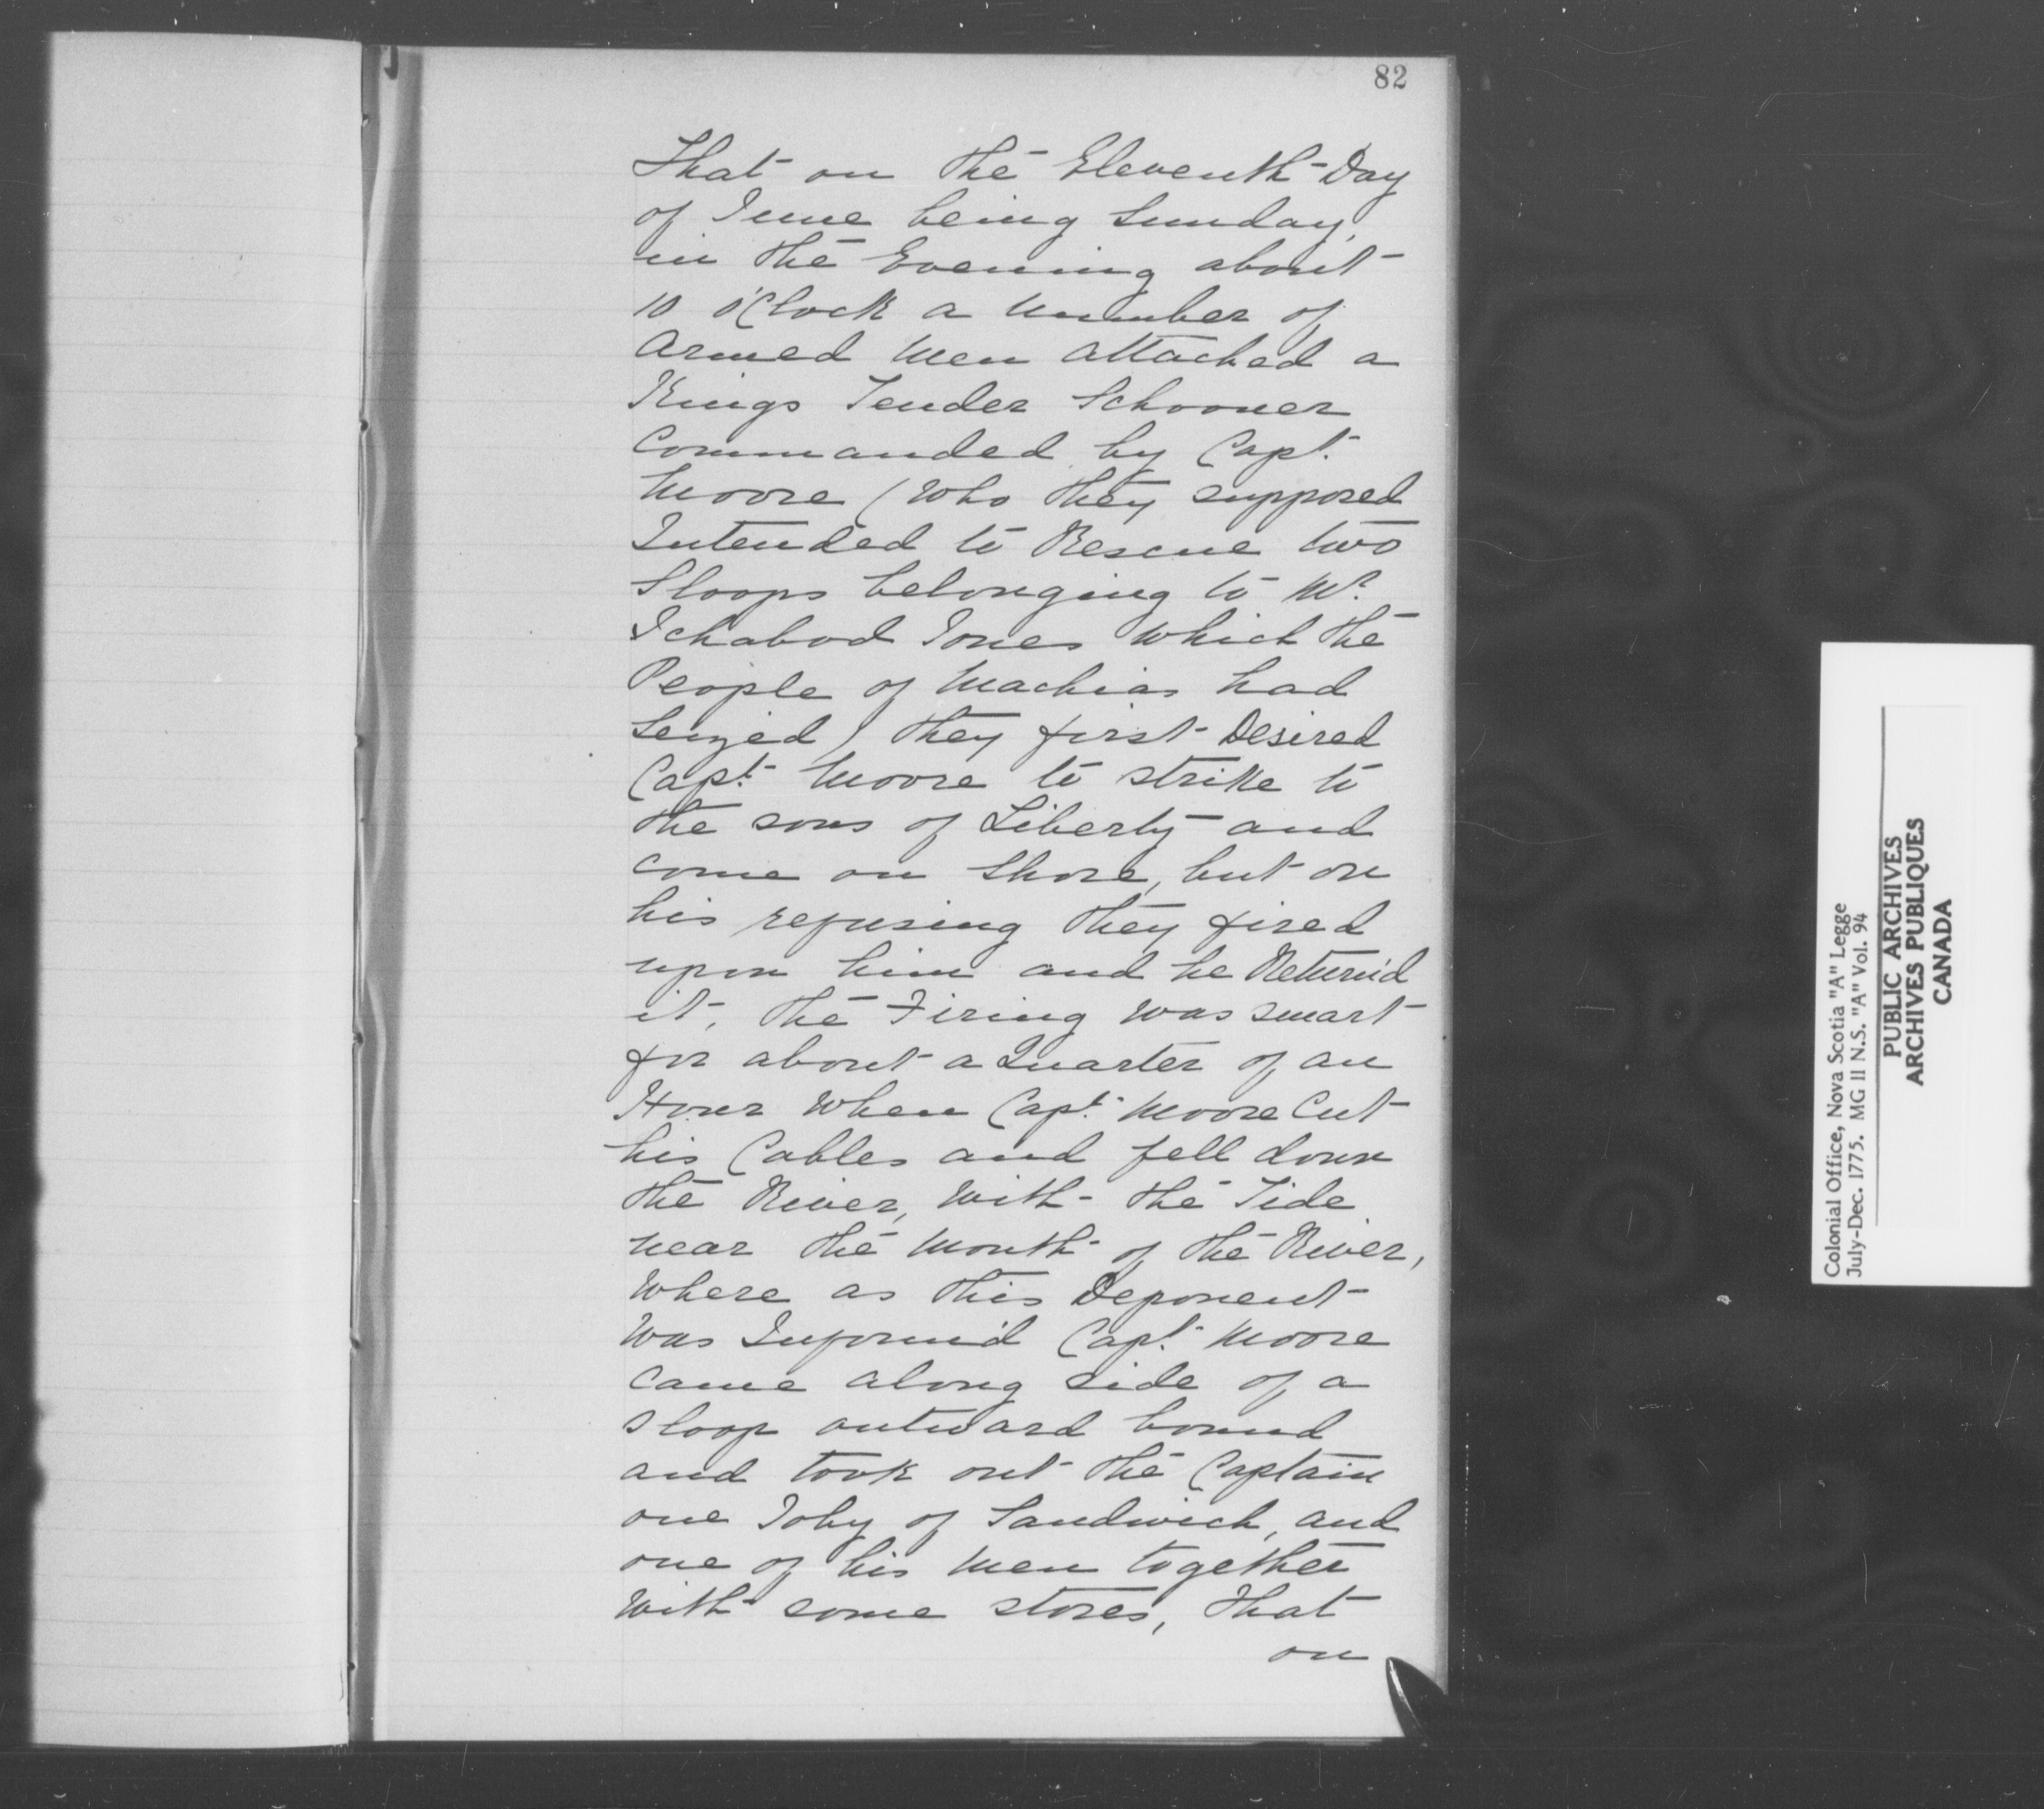 82
That on the Eleventh Day
of June being Sunday,
in the Evening about
10 o'Clock a Number of
Armed Men attached a
Kings Tender Schooner
Commanded by Capt.
Moore (Who they supposed
Intended to Rescue two
Sloops belonging to Mr.
Ichabod Jones Which the
People of Machias had
Seized) they first Desired
Capt. Moore to strike to
the sons of Liberty and
come on Shore, but on
his refusing they fired
upon him and he Return'd
it, the Firing was smart
for about a Quarter of an
Hour When Capt. Moore Cut
his Cables and fell down
the River, With the Tide
near the Mouth of the River,
Where as this Deponent
Was Inform'd Capt. Moore
Came along side of a
Sloop outward bound
and took out the Captain
one Toby of Sandwich, and
one of his Men together
With some stores, that
on
Colonial Office, Nova Scotia "A" Legge
July-Dec. 1775. MG 11 N.S. "A" Vol. 94
PUBLIC ARCHIVES
ARCHIVES PUBLIQUES
CANADA